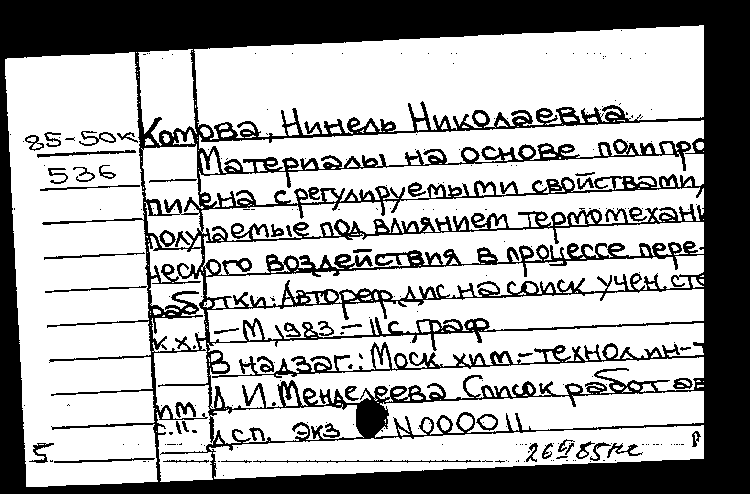 85-50к Котова, Нинель Николаевна
536 Материалы на основе полипро
пилена с регулируемыми свойствами,
получаемые под влиянием термомехани
ческого воздействия в процессе пере-
работки: Автореф. дис. на соиск. учен. сте
к.х.н. - М., 1983. - 11 с., граф
В надзаг.: Моск. хим.-технол. ин-т
Д. И. Менделеева. Список работ ав
дсп. экз N000011
5